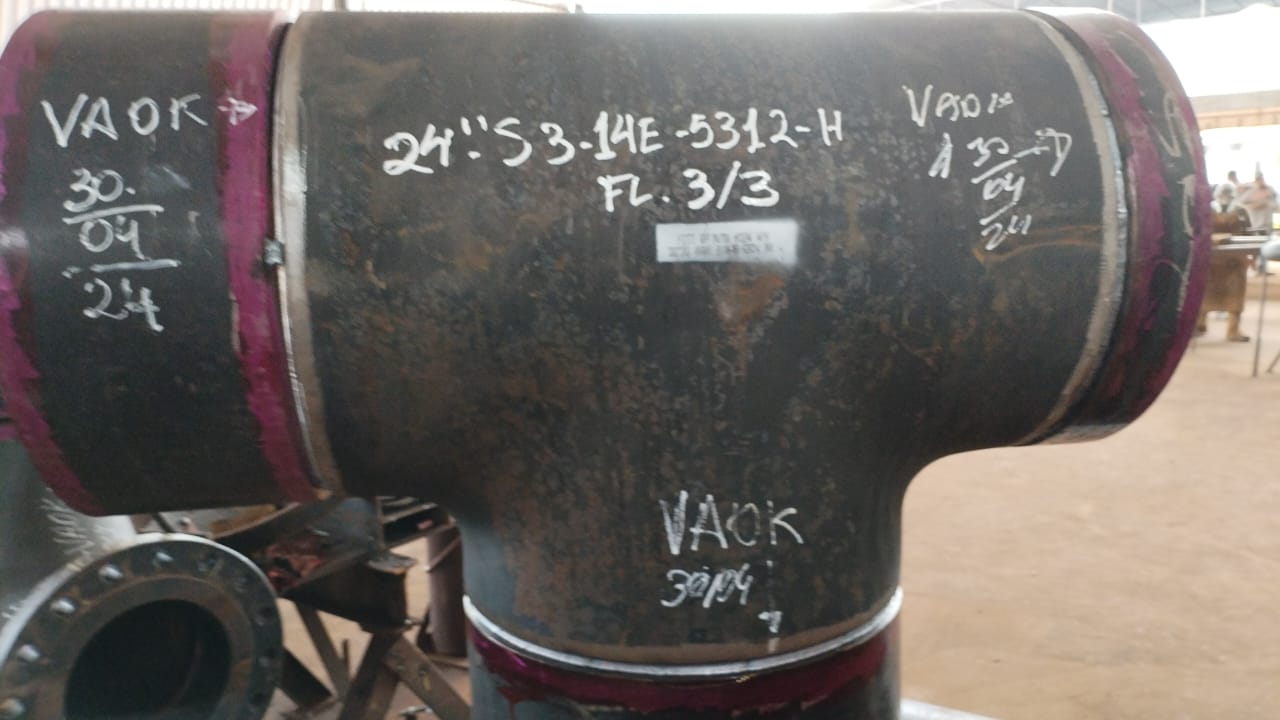 VAOK →
30.
04
24
24":S3-14E-5312-H
FL. 3/3
VAOK
30 →
04
24
VAOK
30/04